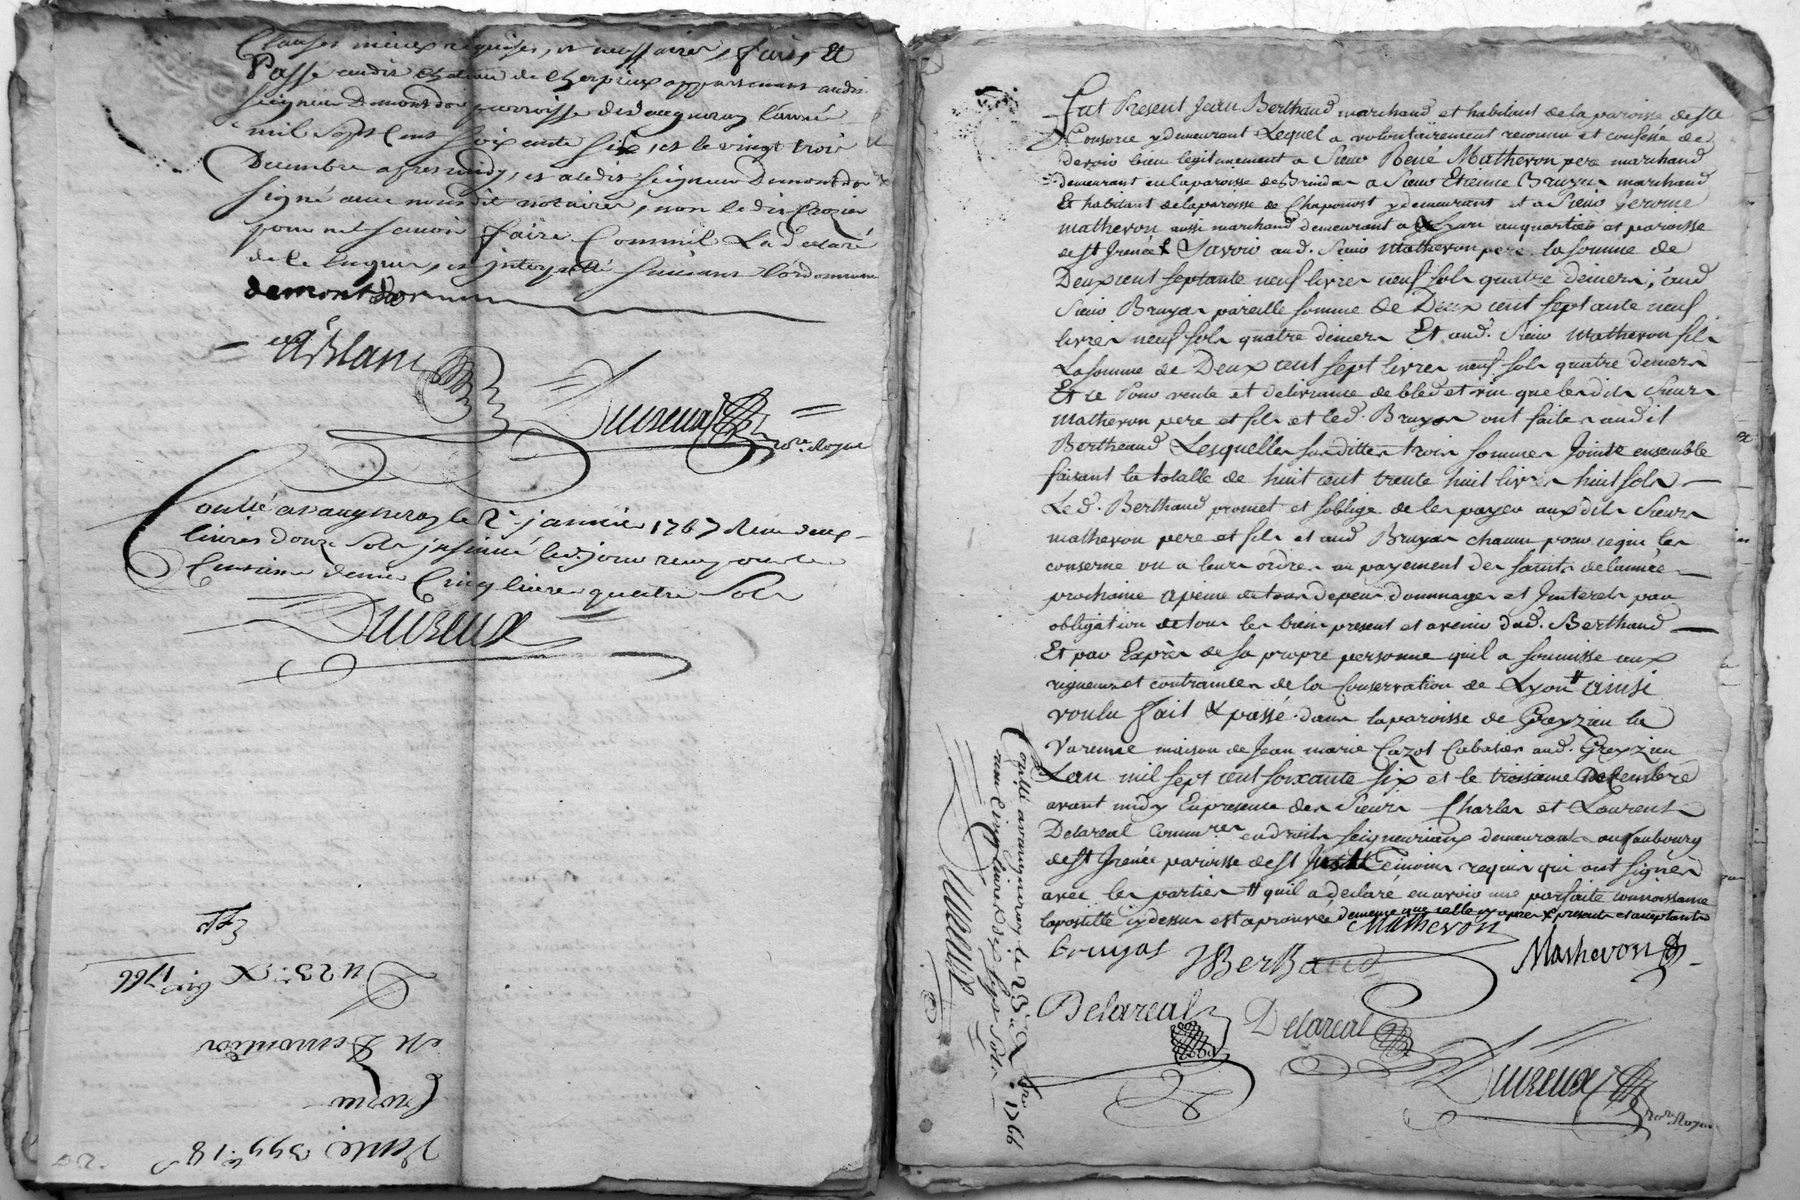 Clauses mieux requises, et necessaires, fait, Et
Passé audit chateau de Cherpieux appartenant audit
Seigneur Demontdor parroisse de vaugneray L'année
mil Sept Cent Soix ente Six, et le vingt trois
Decembre apres midy, et a ledit Seigneur Demontdor
Signé avec nousdit notaires, non le dit Crozier
pour ne Scavoir faire Comme il La declaré
de le Enquis, et jnterpellé Suivant L'ordonnance
demontdor
Blanc
Dutreux
nore. Royal
Contlé a vaugneray le 2e janvier 1767 Reçu deux
livres douze Sols jnsinué led. jour reçu pour le
Centieme denier Cinq livres quatre Sols
Dutreux
Vente 399 ₶. 18 s
Crozier
M Demontdor
Du 23e. Xbre 1766
Exp
Fut Present Jean Berthaud marchand et habitant de la paroisse de Ste
Consorce y demeurant Lequel a volontairement reconnu et confessé de
devoir bien legitimement a Sieur René Matheron pere marchand
demeurant en la paroisse de Brindas a Sieur Etienne Bruyas marchand
Et habitant de la paroisse de Chaponost y demeurant et a Sieur Jerome
matheron aussi marchand demeurant a Lyon au quartier et paroisse
de St Irenée Savoir aud. Sieur Matheron pere la somme de
Deux cent septante neuf livres neuf sols quatre deniers; aud
Sieur Bruyas pareille somme de Deux cent septante neuf
livres neuf sols quatre deniers Et aud. Sieur Matheron fils
La somme de Deux cent sept livres neuf sols quatre deniers
Et ce Pour vente et delivrance de bled et vin que lesdits Sieurs
Matheron pere et fils et led. Bruyas ont faites audit
Bertheaud Lesquelles susdittes trois sommes Jointe ensemble
faisant la totalle de huit cent trente huit livres huit sols
Led. Berthaud promet et soblige de les payer auxdits Sieurs
matheron pere et fils et aud Bruyas chacun pour ce qui les
conserne ou a leurs ordres au payement des saints de lannée
prochaine a peine de tous depens dommages et Jnterets par
obligation de tous les biens present et avenir dud. Berthaud
Et par Exprès de sa propre personne quil a soumisse aux
rigueurs et contraintes de la Conservation de Lyon # ainsi
voulu fait & passé dans la paroisse de Grezieu la
Varenne maison de Jean marie Cazot Cabatier aud. Grezieu
Lan mil sept cent soixante six et le troisieme decembre
avant midy En presence des Sieurs Charles et Laurent
Delareal Commres en droits seigneuriaux demeurants au faubourg
de St Irenée paroisse de St Just Temoins requis qui ont signés
avec les parties # quil a declaré en avoir une parfaite connoissance
lapostille cy dessus est aprouvée de meme que celle cy apres & presents et acceptants
Matheron
bruyas JBerthaud Matheron
Delareal Delareal
Dutreux
nore. Royal
Contlé a vaugneray le 23e Xbre. 1766
reçu Cinq livres dix sept Sols
Dutreux